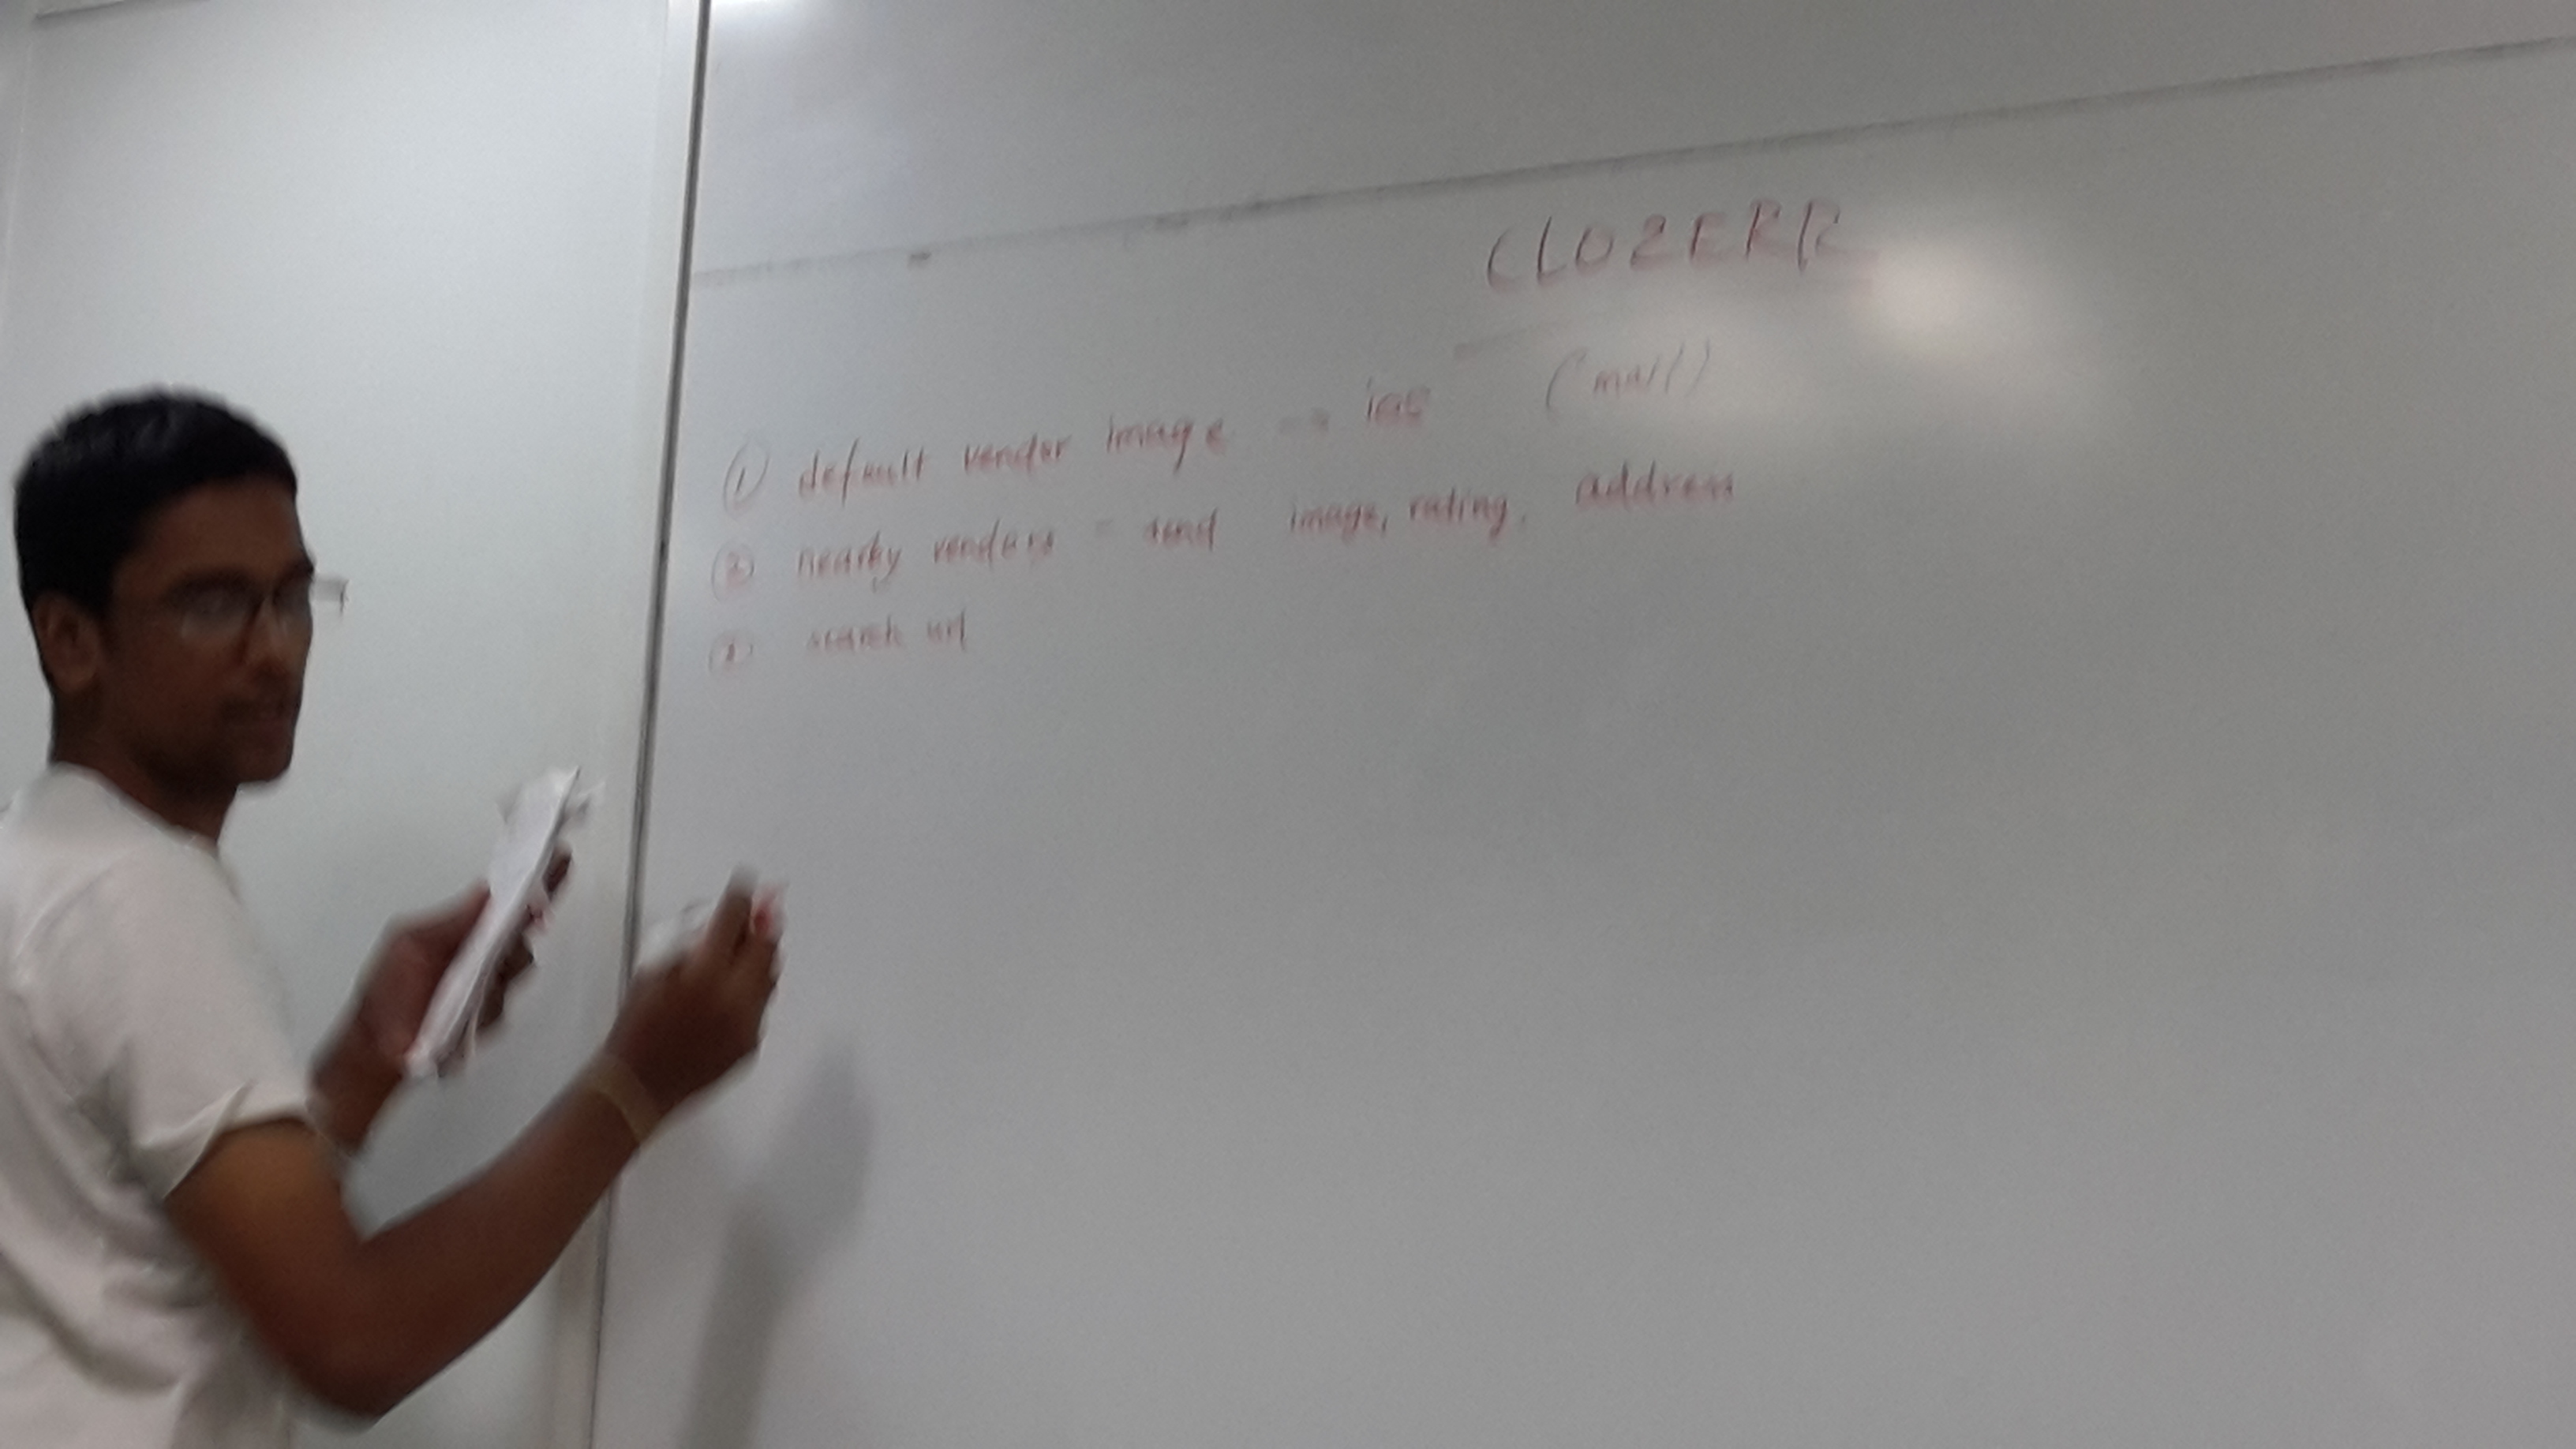 CLOZERR
① default vendor image → ios (mail)
② nearby vendors = send image, rating, address
③ search url